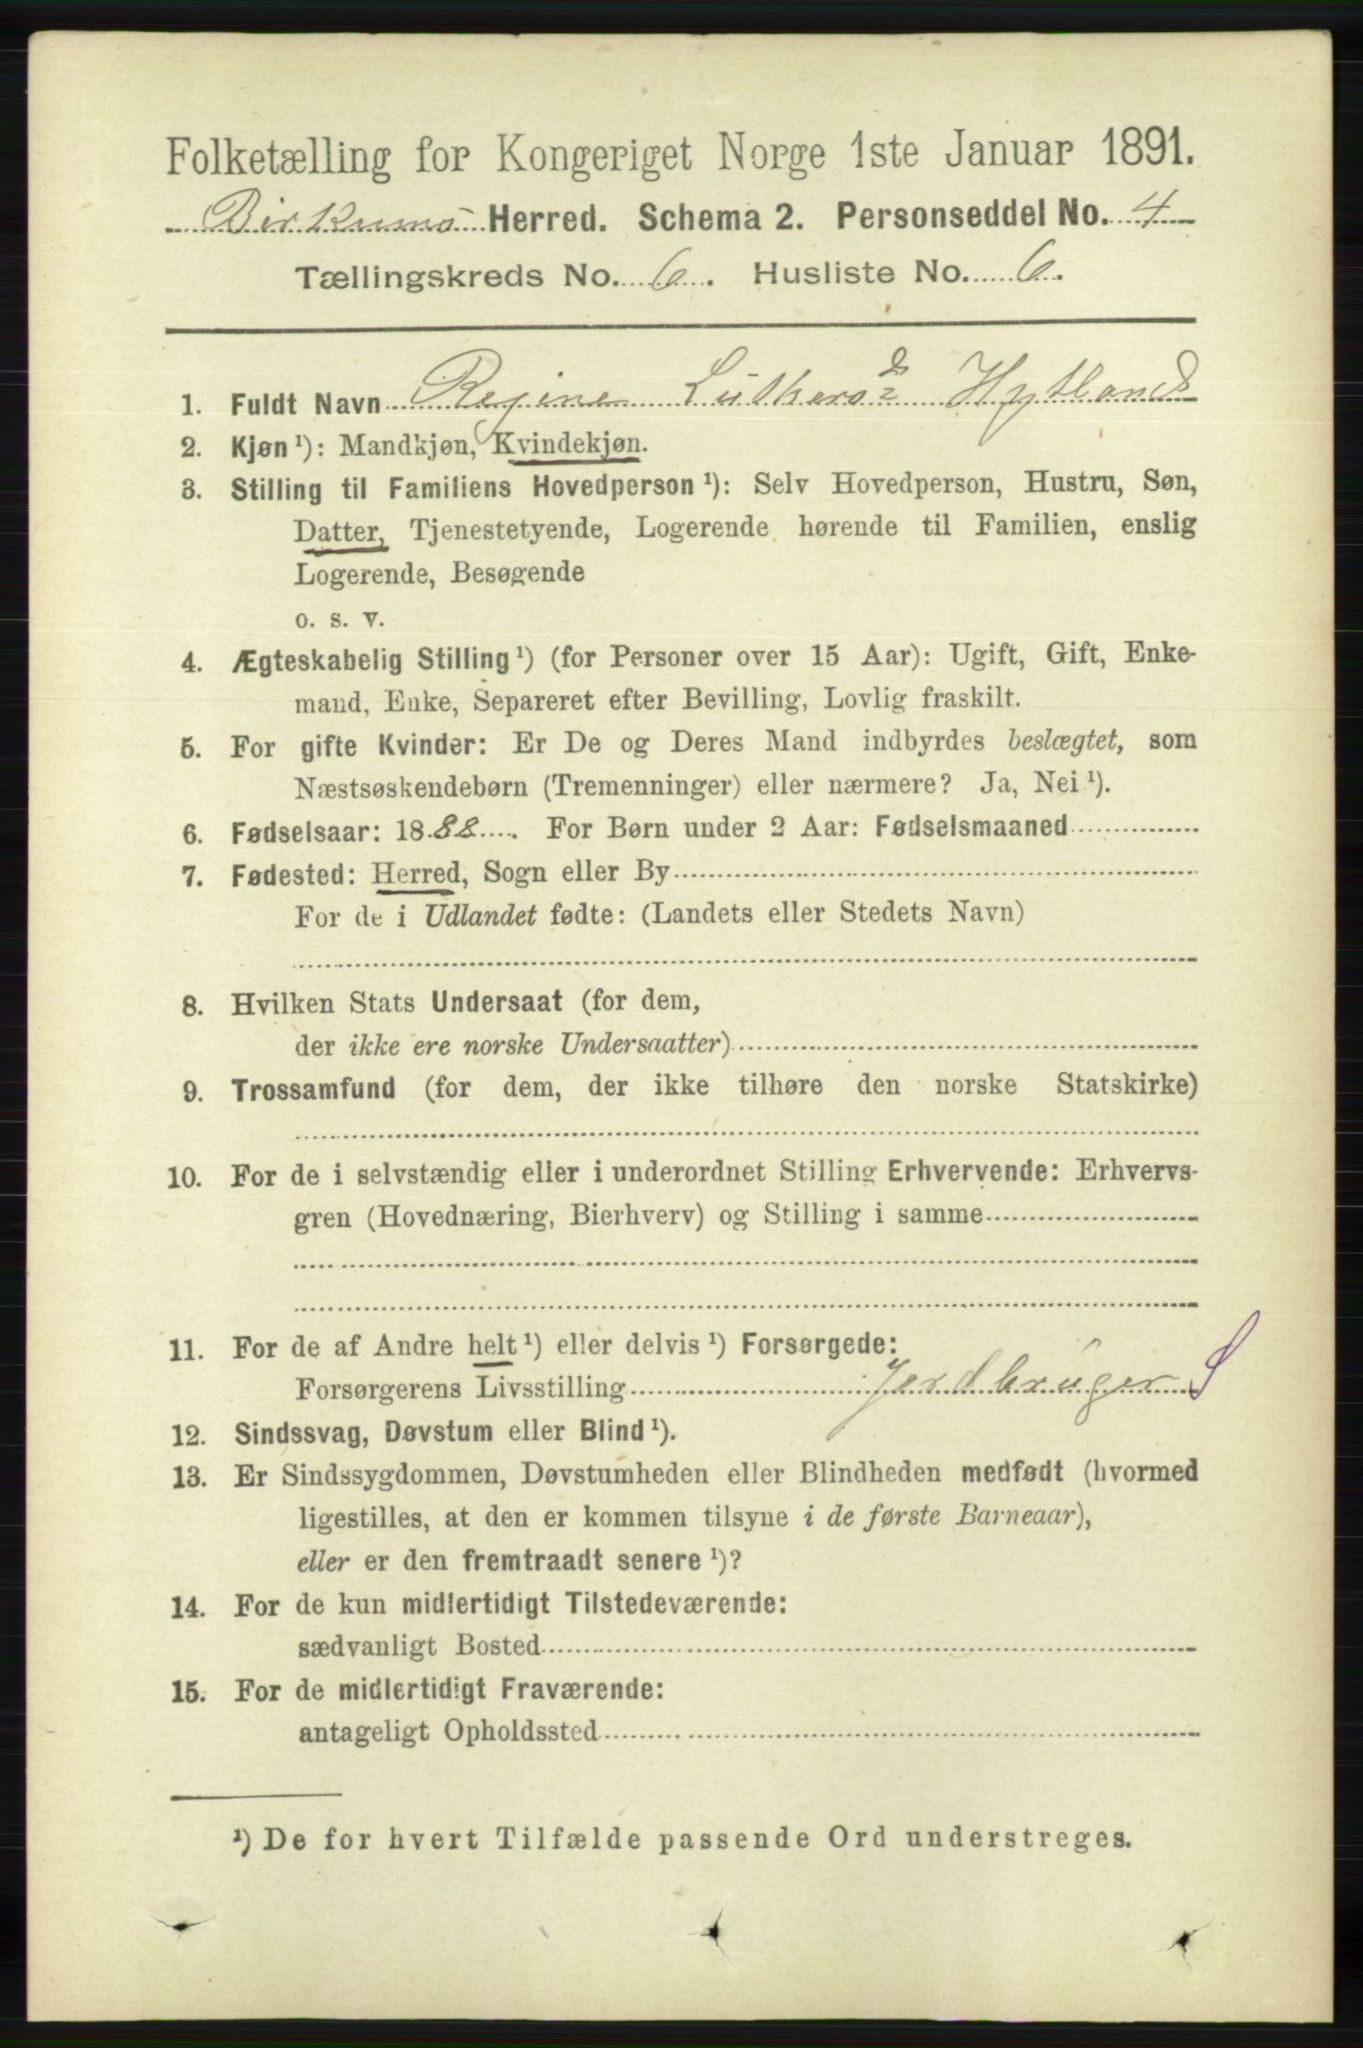 Folketælling for Kongeriget Norge 1ste Januar 1891.
Birkenes Herred. Schema 2. Personseddel No. 4
Tællingskreds No. 6. Husliste No. 6.
1. Fuldt Navn Regine Luthersd Hytland
2. Kjøn ¹): Mandkjøn, Kvindekjøn.
3. Stilling til Familiens Hovedperson ¹): Selv Hovedperson, Hustru, Søn,
Datter, Tjenestetyende, Logerende hørende til Familien, enslig
Logerende, Besøgende
o. s. v.
4. Ægteskabelig Stilling ¹) (for Personer over 15 Aar): Ugift, Gift, Enke-
mand, Enke, Separeret efter Bevilling, Lovlig fraskilt.
5. For gifte Kvinder: Er De og Deres Mand indbyrdes beslægtet, som
Næstsøskendebørn (Tremenninger) eller nærmere? Ja, Nei ¹).
6. Fødselsaar: 1888. For Børn under 2 Aar: Fødselsmaaned
7. Fødested: Herred, Sogn eller By
For de i Udlandet fødte: (Landets eller Stedets Navn)
8. Hvilken Stats Undersaat (for dem,
der ikke ere norske Undersaatter)
9. Trossamfund (for dem, der ikke tilhøre den norske Statskirke)
10. For de i selvstændig eller i underordnet Stilling Erhvervende: Erhvervs-
gren (Hovednæring, Bierhverv) og Stilling i samme
11. For de af Andre helt ¹) eller delvis ¹) Forsørgede:
Forsørgerens Livsstilling Jordbruger S
12. Sindssvag, Døvstum eller Blind ¹).
13. Er Sindssygdommen, Døvstumheden eller Blindheden medfødt (hvormed
ligestilles, at den er kommen tilsyne i de første Barneaar),
eller er den fremtraadt senere ¹)?
14. For de kun midlertidigt Tilstedeværende:
sædvanligt Bosted
15. For de midlertidigt Fraværende:
antageligt Opholdssted
¹) De for hvert Tilfælde passende Ord understreges.